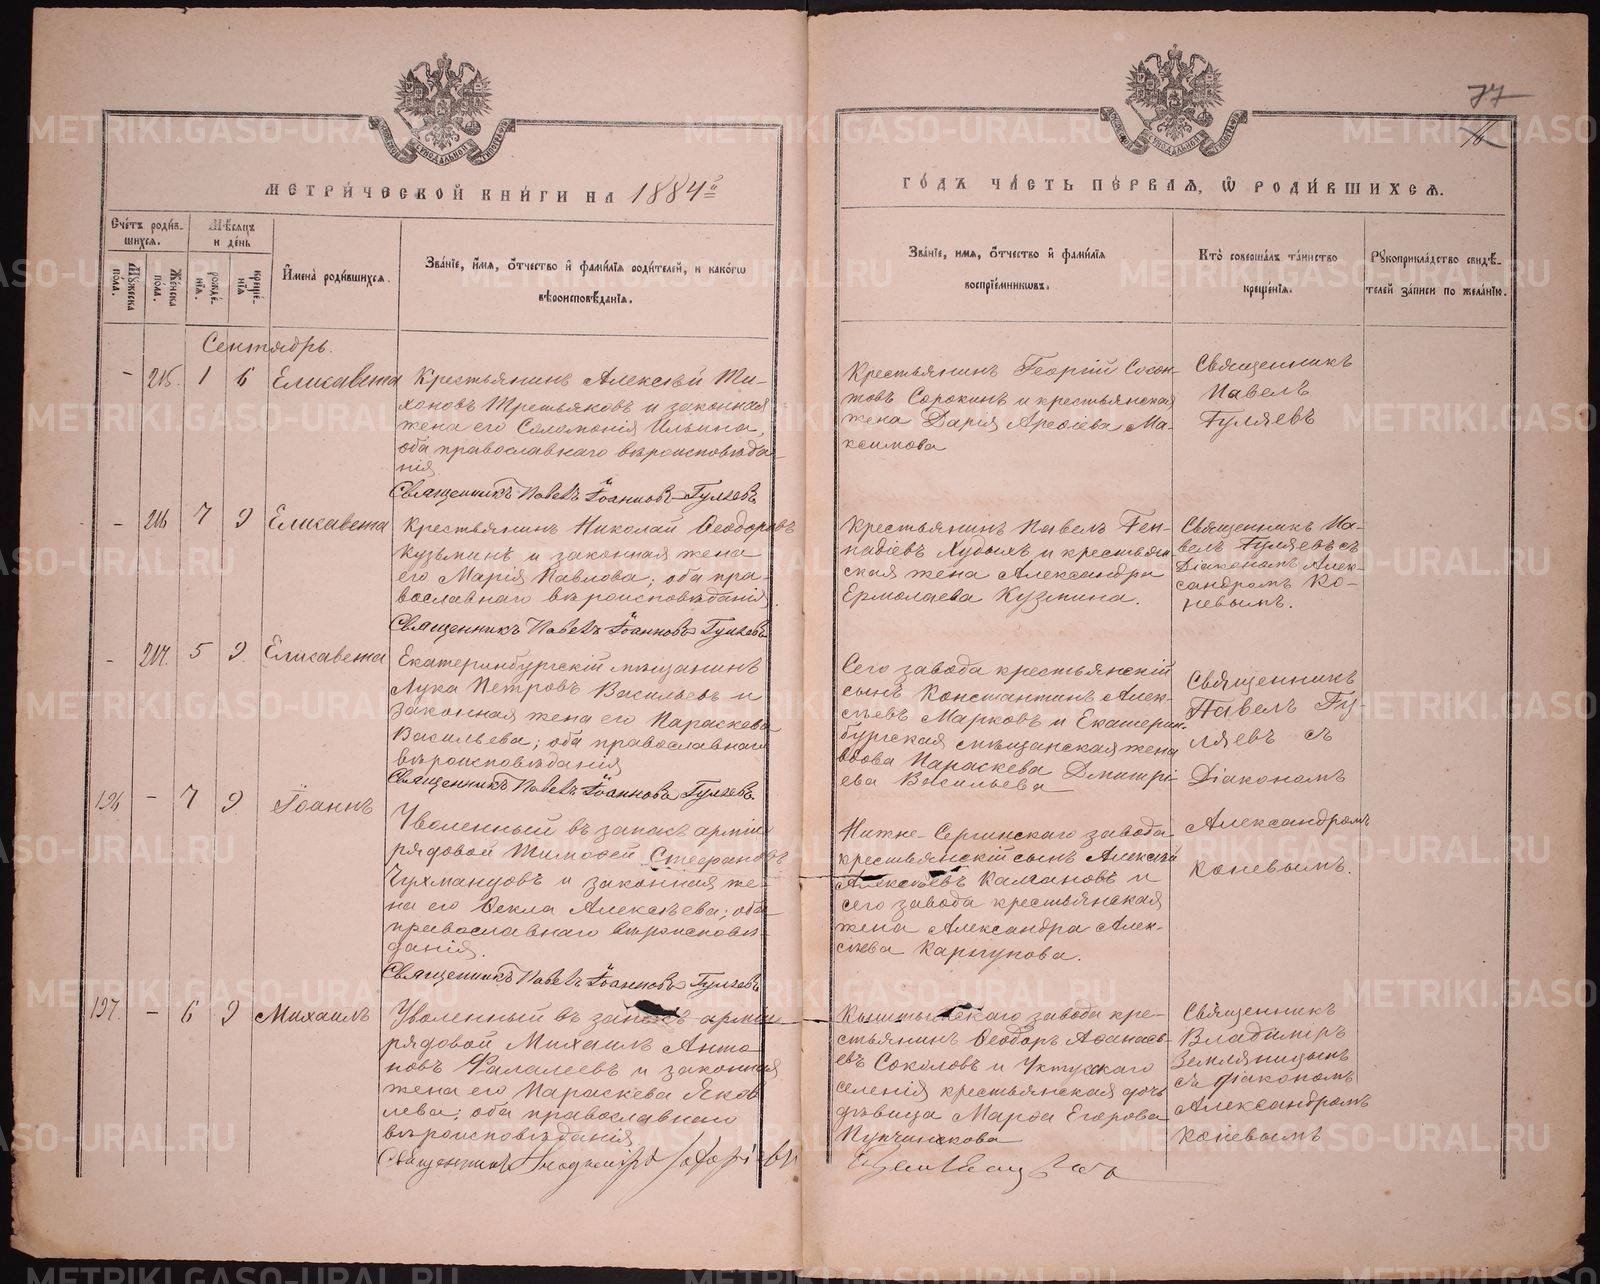 77
МЕТРИ́ЧЕСКОЙ КНИ́ГИ НА 1884й
ГО́ДЪ ЧА́СТЬ ПЕ́РВАЯ, Ѡ РОДИ́ВШИХСЯ.
Сче́тъ роди́вшихся.
Мѣ́сяцъ и де́нь
Му́жеска по́ла.
Же́нска по́ла.
рожде́нія.
креще́нія
И́мена роди́вшихся.
Зва́ніе, и́мя, о́тчество и фами́лія роди́телей, и како́гѡ
вѣроисповѣ́данія.
Зва́ніе, имя, о́тчество и фами́лія
воспріе́мниковъ.
Кто̀ соверша́лъ та́инство
креще́нія.
Рукоприкла́дство свидѣ́-
телей за́писи по жела́нію.
Сентябрь.
– 215. 1 6 Елисавета
Крестьянинъ Алексѣй Ти-
хоновъ Третьяковъ и законная
жена его Соломонія Ильина,
оба православнаго вѣроисповѣда-
нія.
Священникъ Павелъ Іоанновъ Гуляевъ
Крестьянинъ Георгій Созон-
товъ Сорокинъ и крестьянская
жена Дарія Арефіева Ма-
ксимова
Священникъ
Павелъ
Гуляевъ
– 216 7 9 Елисавета
Крестьянинъ Николай Ѳеодоровъ
Кузьминъ и законная жена
его Марія Павлова; оба пра-
вославнаго вѣроисповѣданія.
Священникъ Павелъ Іоанновъ Гуляевъ
Крестьянинъ Павелъ Ген-
надіевъ Худыхъ и крестьян-
ская жена Александра
Ермолаева Кузмина.
Священникъ Па-
велъ Гуляевъ съ
Діакономъ Алек-
сандромъ Ко-
невымъ.
– 217. 5 9. Елисавета
Екатеринбургскій мѣщанинъ
Лука Петровъ Васильевъ и
законная жена его Параскева
Васильева; оба православнаго
вѣроисповѣданія
Священникъ Павелъ Іоанновъ Гуляевъ.
Сего завода крестьянскій
сынъ Константинъ Алек-
сѣевъ Марковъ и Екатерин-
бургская мѣщанская жена
вдова Параскева Дмитрі-
ева Васильева
Священникъ
Павелъ Гу-
ляевъ съ
Діакономъ
196 – 7 9. Іоаннъ
Уволенный въ запасъ арміи
рядовой Тимоѳей Стефановъ
Чухманцовъ и законная же-
на его Ѳекла Алексѣева; оба
православнаго вѣроисповѣ-
данія.
Священникъ Павелъ Іоанновъ Гуляевъ
Нижне-Сергинскаго завода
крестьянскій сынъ Алексѣй
Алексѣевъ Калгановъ и
сего завода крестьянская
жена Александра Алек-
сѣева Каргупова.
Александромъ
Коневымъ.
197. – 6 9 Михаилъ
Уволенный въ запасъ арміи
рядовой Михаилъ Анто
новъ Фалалеевъ и законная
жена его Параскева Яков
лева; оба православнаго
вѣроисповѣданія
Священникъ
Кыштымскаго завода кре-
стьянинъ Ѳеодоръ Аѳанась-
евъ Соколовъ и Уктусскаго
селенія крестьянская дочь
дѣвица Марѳа Егорова
Пупчинкова
Священникъ
Владиміръ
Земляницынъ
съ діакономъ
Александромъ
Коневымъ
METRIKI.GASO-URAL.RU